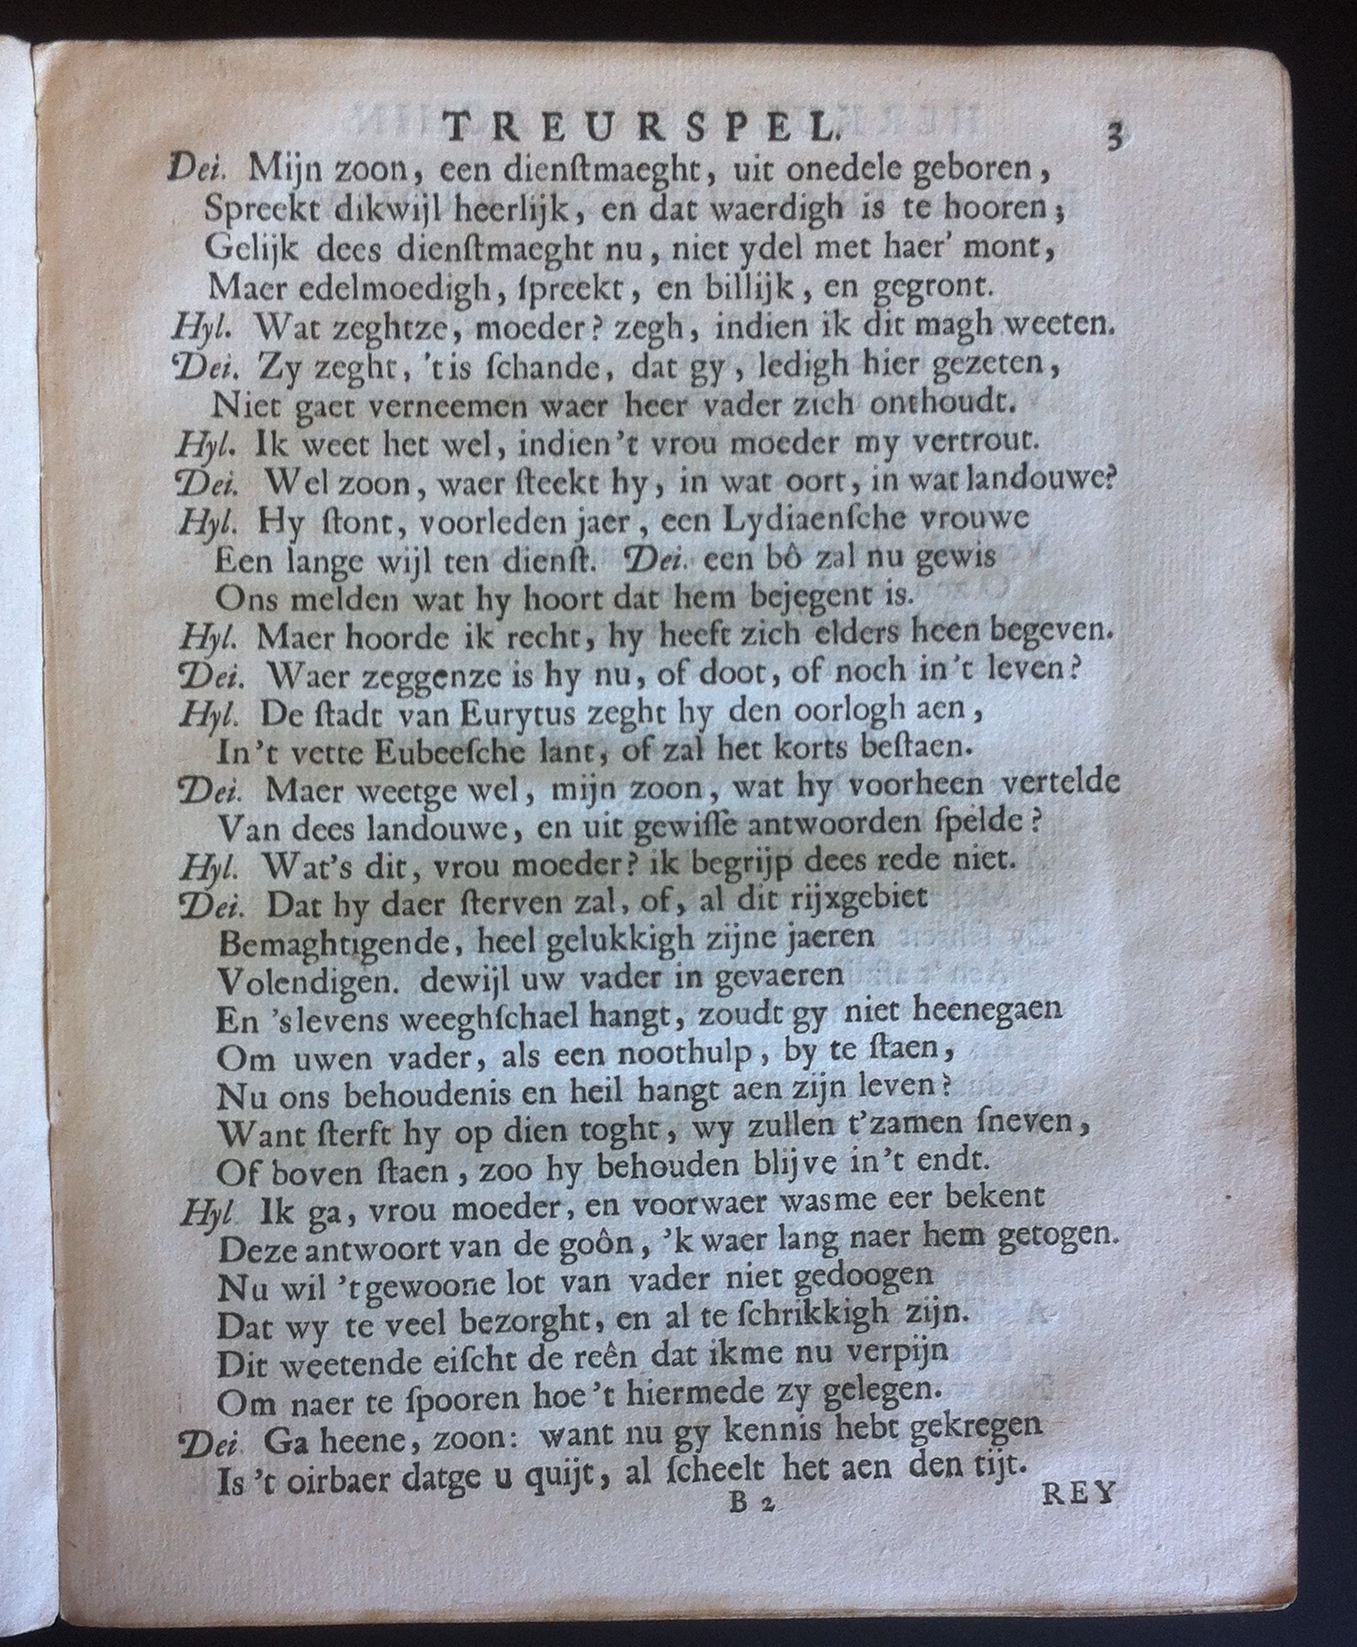 TREURSPEL. 3
Dei. Mijn zoon, een dienſtmaeght, uit onedele geboren,
Spreekt dikwijl heerlijk, en dat waerdigh is te hooren;
Gelijk dees dienſtmaeght nu, niet ydel met haer' mont,
Maer edelmoedigh, ſpreekt, en billijk, en gegront.
Hyl. Wat zeghtze, moeder? zegh, indien ik dit magh weeten.
Dei. Zy zeght, 't is ſchande, dat gy, ledigh hier gezeten,
Niet gaet verneemen waer heer vader zich onthoudt.
Hyl. Ik weet het wel, indien 't vrou moeder my vertrout.
Dei. Wel zoon, waer ſteekt hy, in wat oort, in wat landouwe?
Hyl. Hy ſtont, voorleden jaer, een Lydiaenſche vrouwe
Een lange wijl ten dienſt. Dei. een bô zal nu gewis
Ons melden wat hy hoort dat hem bejegent is.
Hyl. Maer hoorde ik recht, hy heeft zich elders heen begeven.
Dei. Waer zeggenze is hy nu, of doot, of noch in 't leven?
Hyl. De ſtadt van Eurytus zeght hy den oorlogh aen,
In 't vette Eubeeſche lant, of zal het korts beſtaen.
Dei. Maer weetge wel, mijn zoon, wat hy voorheen vertelde
Van dees landouwe, en uit gewiſſe antwoorden ſpelde?
Hyl. Wat's dit, vrou moeder? ik begrijp dees rede niet.
Dei. Dat hy daer ſterven zal, of, al dit rijxgebiet
Bemaghtigende, heel gelukkigh zijne jaeren
Volendigen. dewijl uw vader in gevaeren
En 's levens weeghſchael hangt, zoudt gy niet heenegaen
Om uwen vader, als een noothulp, by te ſtaen,
Nu ons behoudenis en heil hangt aen zijn leven?
Want ſterft hy op dien toght, wy zullen t'zamen ſneven,
Of boven ſtaen, zoo hy behouden blijve in 't endt.
Hyl. Ik ga, vrou moeder, en voorwaer wasme eer bekent
Deze antwoort van de goôn, 'k waer lang naer hem getogen.
Nu wil 't gewoone lot van vader niet gedoogen
Dat wy te veel bezorght, en al te ſchrikkigh zijn.
Dit weetende eiſcht de reên dat ikme nu verpijn
Om naer te ſpooren hoe 't hiermede zy gelegen.
Dei. Ga heene, zoon: want nu gy kennis hebt gekregen
Is 't oirbaer datge u quijt, al ſcheelt het aen den tijt.
B 2 REY